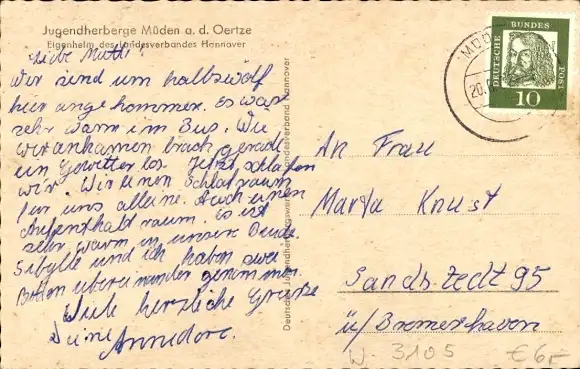 Jugendherberge Müden a. d. Oertze
Eigenheim des Landesverbandes Hannover
Liebe Mutti!
Wir sind um halbzwölf
hier angekommen. Es war
sehr warm im Bus. Wie
wir ankamen brach gerade
ein Gewitter los. Jetzt schlafen
wir. Wir einen Schlafraum
für uns alleine. Auch einen
Aufenthaltraum. Es ist
sehr warm in unsere Bude.
Sibylle und ich haben zwei
Betten übereinander genommen.
Viele herzliche Grüße
Deine Annedore.
Deutsches Jugendherbergswerk Landesverband Hannover
DEUTSCHE BUNDES POST
10
20.
An Frau
Marta Knust
Sandstedt 95
ü/Bremerhaven
W-3105
€6,-